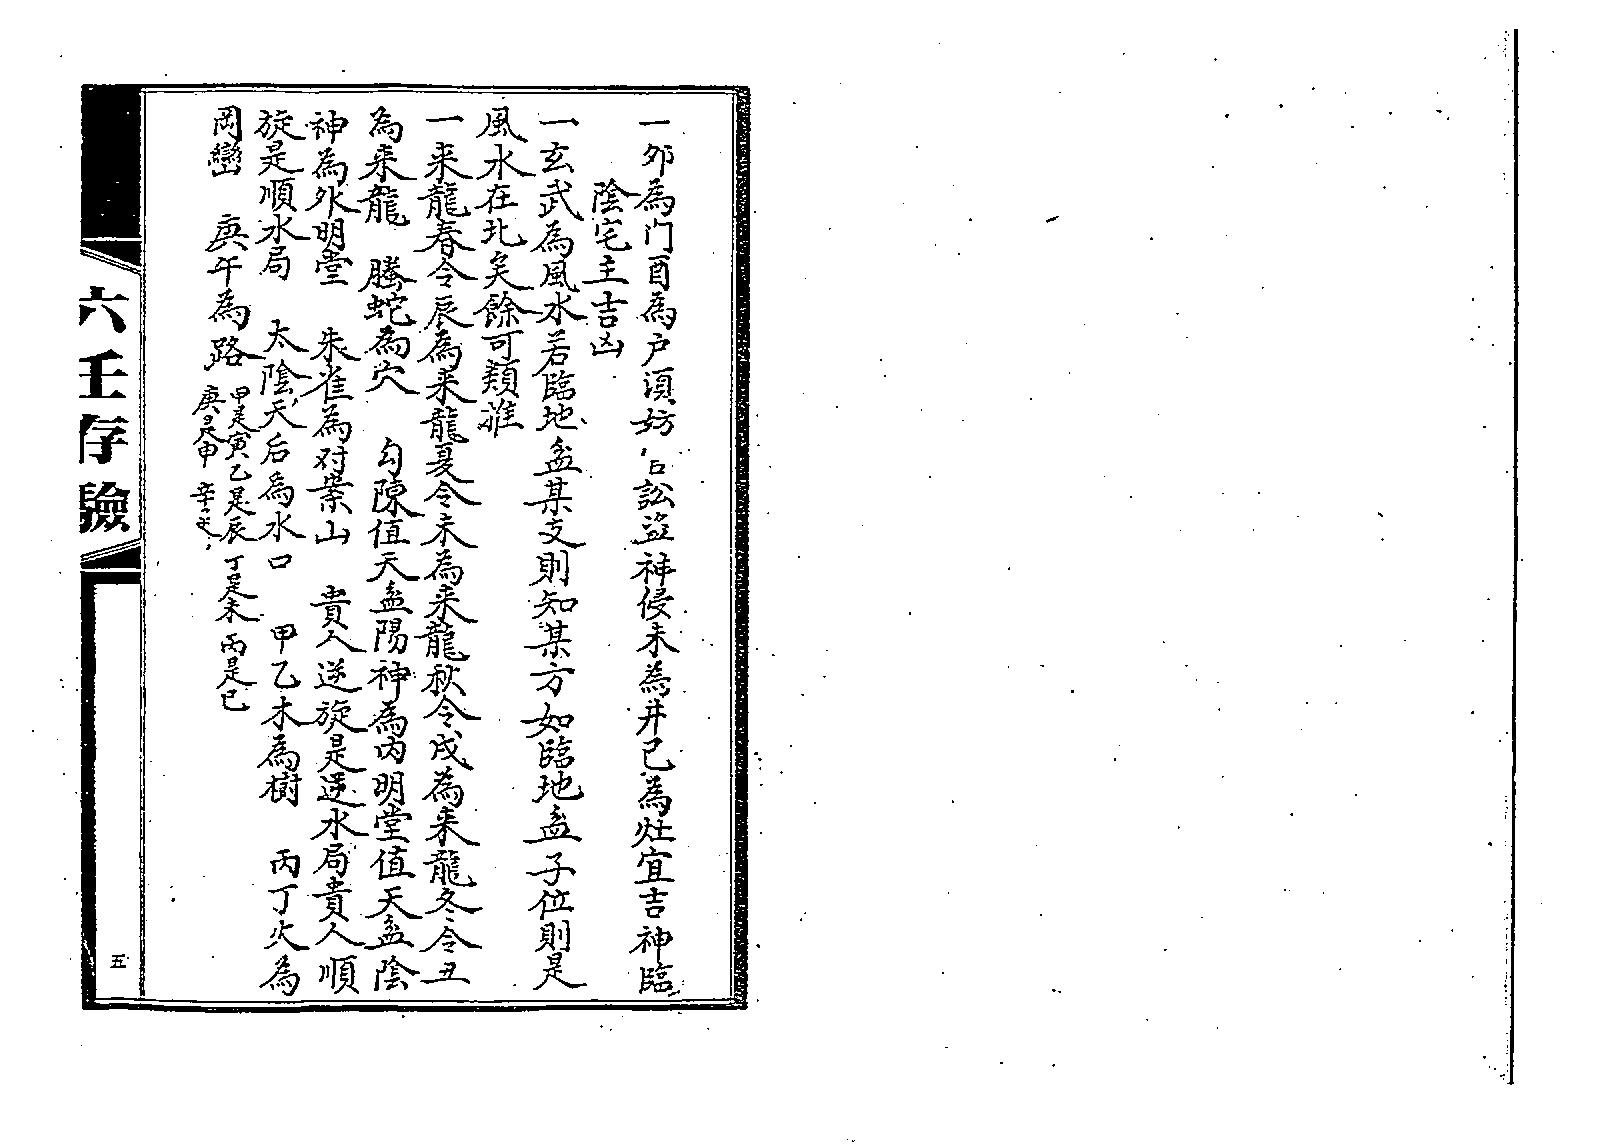 一卯為门酉為户須妨口訟盜神侵未為井巳為灶宜吉神臨
陰宅主吉凶
一玄武為風水若臨地盆某支則知某方如臨地盆子位則是
風水在北矣餘可類推
一来龍春令辰為来龍夏令未為来龍秋令戌為来龍冬令丑
為来龍　騰蛇為穴　勾陳值天盆陽神為内明堂值天盆陰
神為外明堂　朱雀為对案山　貴人逆旋是逆水局貴人順
旋是順水局　太陰天后為水口　甲乙木為樹　丙丁火為
岡巒　庚午為路　甲是寅乙是辰　丁是未　丙是巳
庚是申　辛是
六壬存驗
五